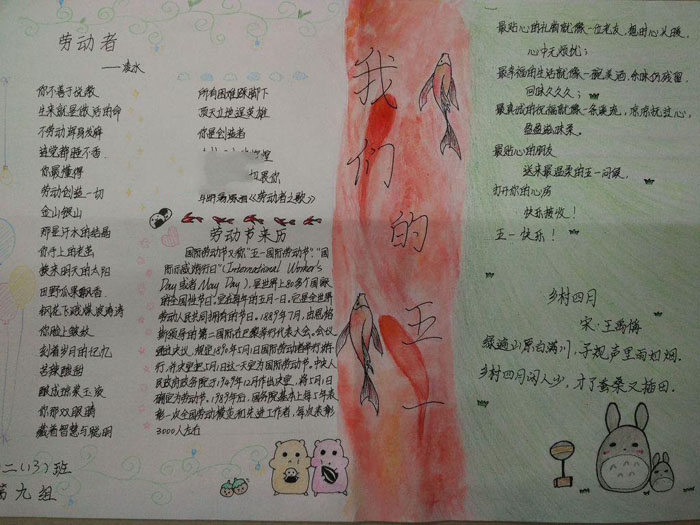 劳动者
——凌水
你不善于说教
生来就是做活的命
不劳动浑身发麻
连觉都睡不香
你最懂得
劳动创造一切
金山银山
那是汗水的结晶
你手上的老茧
被来明天的太阳
田野瓜果飘香
钢花飞溅爆浪涛涛
你脸上皱纹
刻着岁月的记忆
苦辣酸甜
酿成琼浆玉液
你那双眼睛
藏着智慧与聪明
所有困难踩脚下
顶天立地逞英雄
你是创造者
《劳动者之歌》
劳动节来历
国际劳动节又称"五一国际劳动节"、"国
际示威游行日"(International Worker's
Day 或者 May Day),是世界上80多个国家
的全国性节日。定在每年的五月一日。它是全世界
劳动人民共同拥有的节日。1889年7月,由恩格
斯领导的第二国际在巴黎举行代表大会。会议
通过决议,规定1890年5月1日国际劳动者举行游
行,并决定把5月1日这一天定为国际劳动节。中央人
民政府政务院于1949年12月作出决定,将5月1日
确定为劳动节。1989年后,国务院基本上每5年表
彰一次全国劳动模范和先进工作者,每次表彰
3000人左右
二(13)班
第九组
我们的五一
最贴心的礼物就像一位老友,想时心头暖,
心中无烦忧;
最幸福的生活就像一碗美酒,余味仍残留
回味久久久;
最真诚的祝福就像一条溪流,凉凉抚过心,
盈盈溢味美。
最贴心的朋友
送来最温柔的五一问候,
打开你的心房
快乐接收!
五一快乐!
乡村四月
宋·王禹偁
绿遍山原白满川,子规声里雨如烟.
乡村四月闲人少,才了蚕桑又插田.